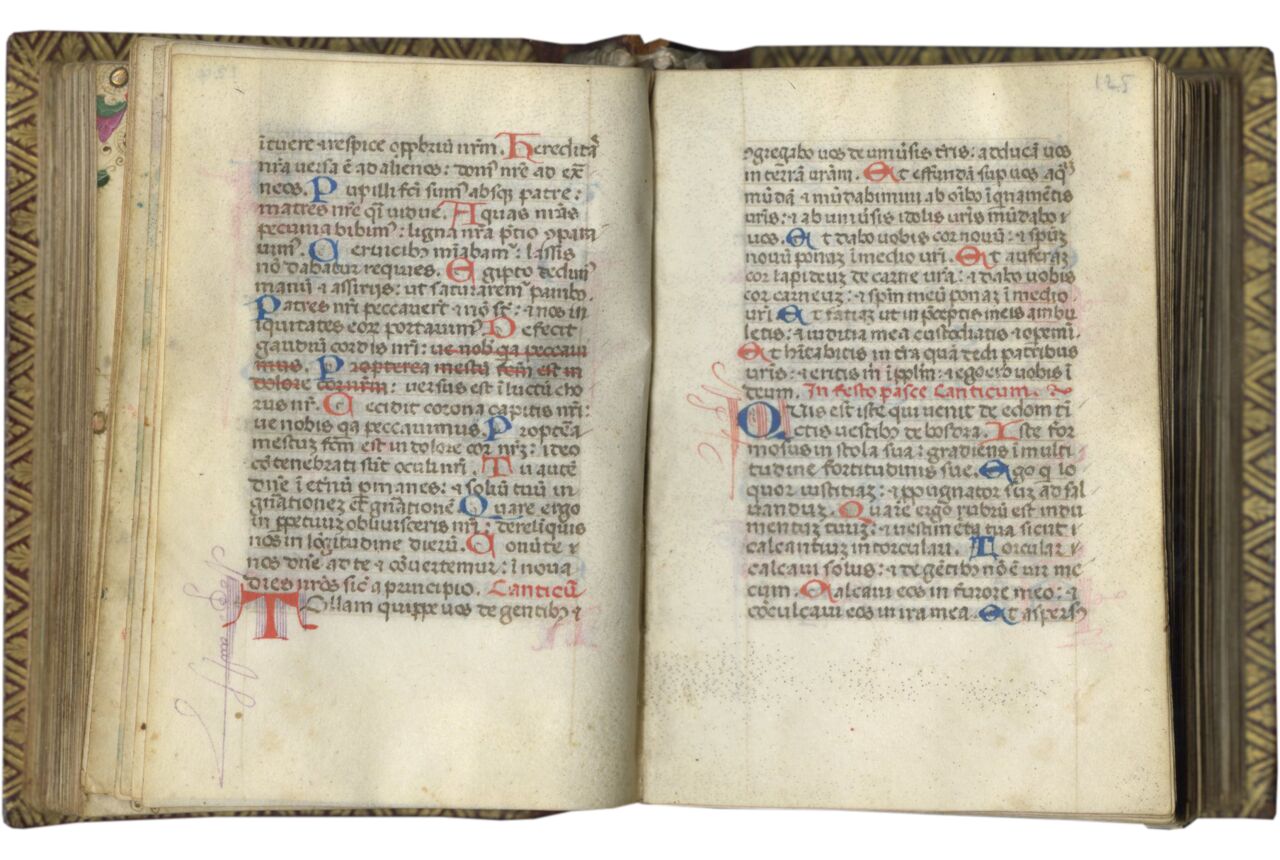 ītuere ⁊ respice opp̄briū nr̄m. Hereditaˢ
nr̄a versa ē ad alienos: domꝰ nr̄e ad ex̄
neos. Pupilli fc̄i sumꝰ absqꝫ patre:
matres nr̄e qͥ vidue. Aquas nr̄as
pecunia bibimꝰ: ligna nr̄a p̄tio ꝯparа
uimꝰ. Ceruicibꝫ mīabamꝰ: lassis
nō dabatur requies. Egipto dedimꝰ
manū ⁊ assirijs: ut saturaremꝰ pan̄bꝫ.
Patres nr̄i peccauer̄t ⁊ nō st̄: ⁊ nos in
iquitates eoꝝ portauimꝰ. Defecit
gaudiū cordis nr̄i: ue nob̄ qa peccaui
mus. Propterea mestū fc̄m est in
dolore cor nr̄m: versus est ī luctū cho
rus nr̄. Cecidit corona capitis nr̄i:
ue nobis qa peccauimus. Propt̄ea
mestuꝫ fc̄m est in dolore cor nr̄ꝫ: ideo
cōtenebrati sūt oculi nr̄i. Tu autē
dn̄e ī et̄nū p̄manes: ⁊ soliū tuū in
gn̄ationeꝫ ⁊ gn̄ationē. Quare ergo
in p̄petuuꝫ obliuisceris nr̄i: derelīquis
nos in lōgitudine dierū. Conūte ⁊
nos dn̄e ad te ⁊ cōuertemur: īnoua
dies nr̄os sic̄ a principio. Canticū
Tollam quippe uos de gentibꝫ ⁊
125
ꝯgregabo uos de uniūsis t̄ris: adducā uos
in terrā urām. Et effundā sup uos aqꝫ
mūdā ⁊ mūdabimini ab oībꝫ īqnamētis
ur̄is: ⁊ ab uniūsis idolis ur̄is mūdabo ⁊
uos. Et dabo uobis cor nouū: ⁊ spūꝫ
nouū ponaꝫ ī medio ur̄i. Et auferaꝫ
cor lapideuꝫ de carne ur̄a: ⁊ dabo uobis
cor carneuꝫ: ⁊ spm̄ meū ponaꝫ ī medio
ur̄i. Et faciaꝫ ut in p̄ceptis meis ambu
letis: ⁊ iuditia mea custodiatis ⁊ opemī.
Et hītabitis in t̄ra quā dedi patribus
ur̄is: ⁊ eritis m̄ ī pplm̄: ⁊ ego ero uobis ī
deum. In festo pasce Canticum.
Quis est iste qui venit de edom tī
ctis vestibꝫ de bosra. Iste for
mosus in stola sua: gradiens ī multi
tudine fortitudinis sue. Ego q̄ lo
quor iustitiaꝫ: ⁊ ppugnator suꝫ ad sal
uanduꝫ. Quare ergo rubrū est indu
mentuꝫ tuuꝫ: ⁊ uestimēta tua sicut ī
calcantiuꝫ in torculari. Torcular ⁊
calcaui solus: ⁊ de gētibꝫ nō ē uir me
cum. Calcaui eos in furore meo: ⁊
cōculcaui eos in ira mea. Et aspersꝰ